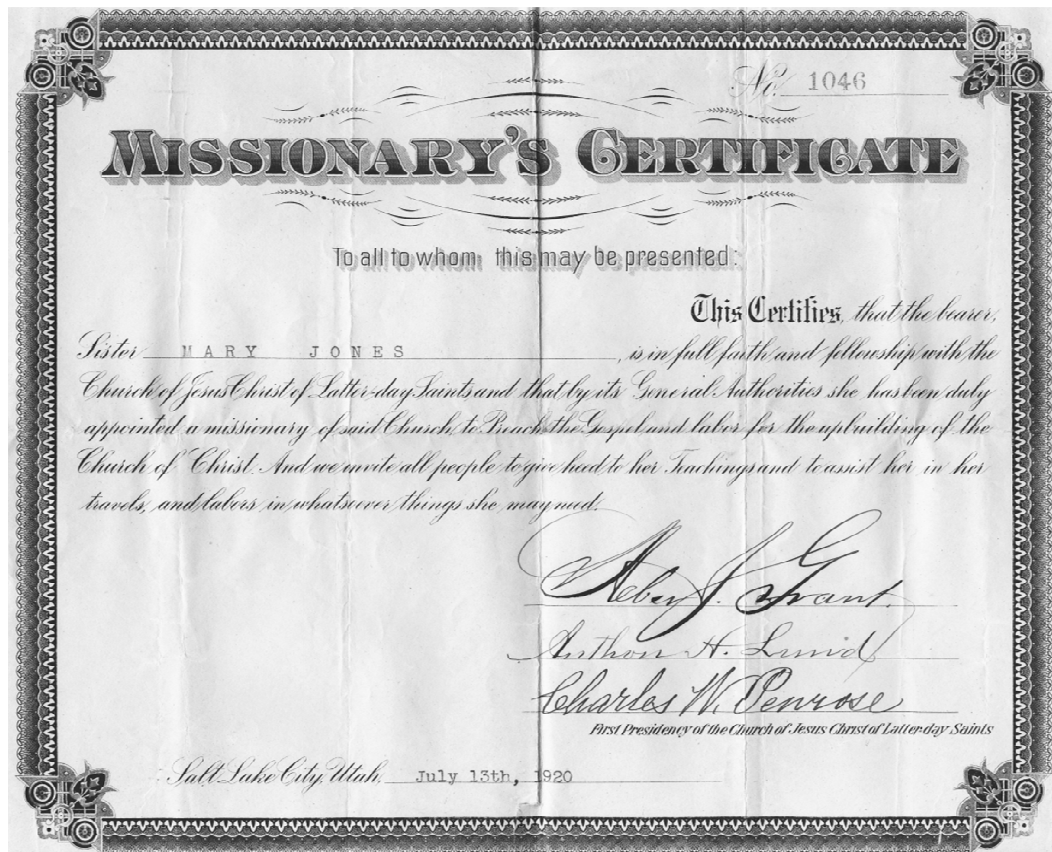 No. 1046
MISSIONARY'S CERTIFICATE
To all to whom this may be presented:
This Certifies, that the bearer,
Sister MARY JONES, is in full faith and fellowship with the
Church of Jesus Christ of Latter-day Saints and that by its General Authorities she has been duly
appointed a missionary of said Church, to Preach the Gospel and labor for the upbuilding of the
Church of Christ. And we invite all people to give heed to her Teachings and to assist her in her
travels, and labors in whatsoever things she may need.
Heber J. Grant.
Anthon H. Lund
Charles W. Penrose
First Presidency of the Church of Jesus Christ of Latter-day Saints
Salt Lake City, Utah, July 13th, 1920